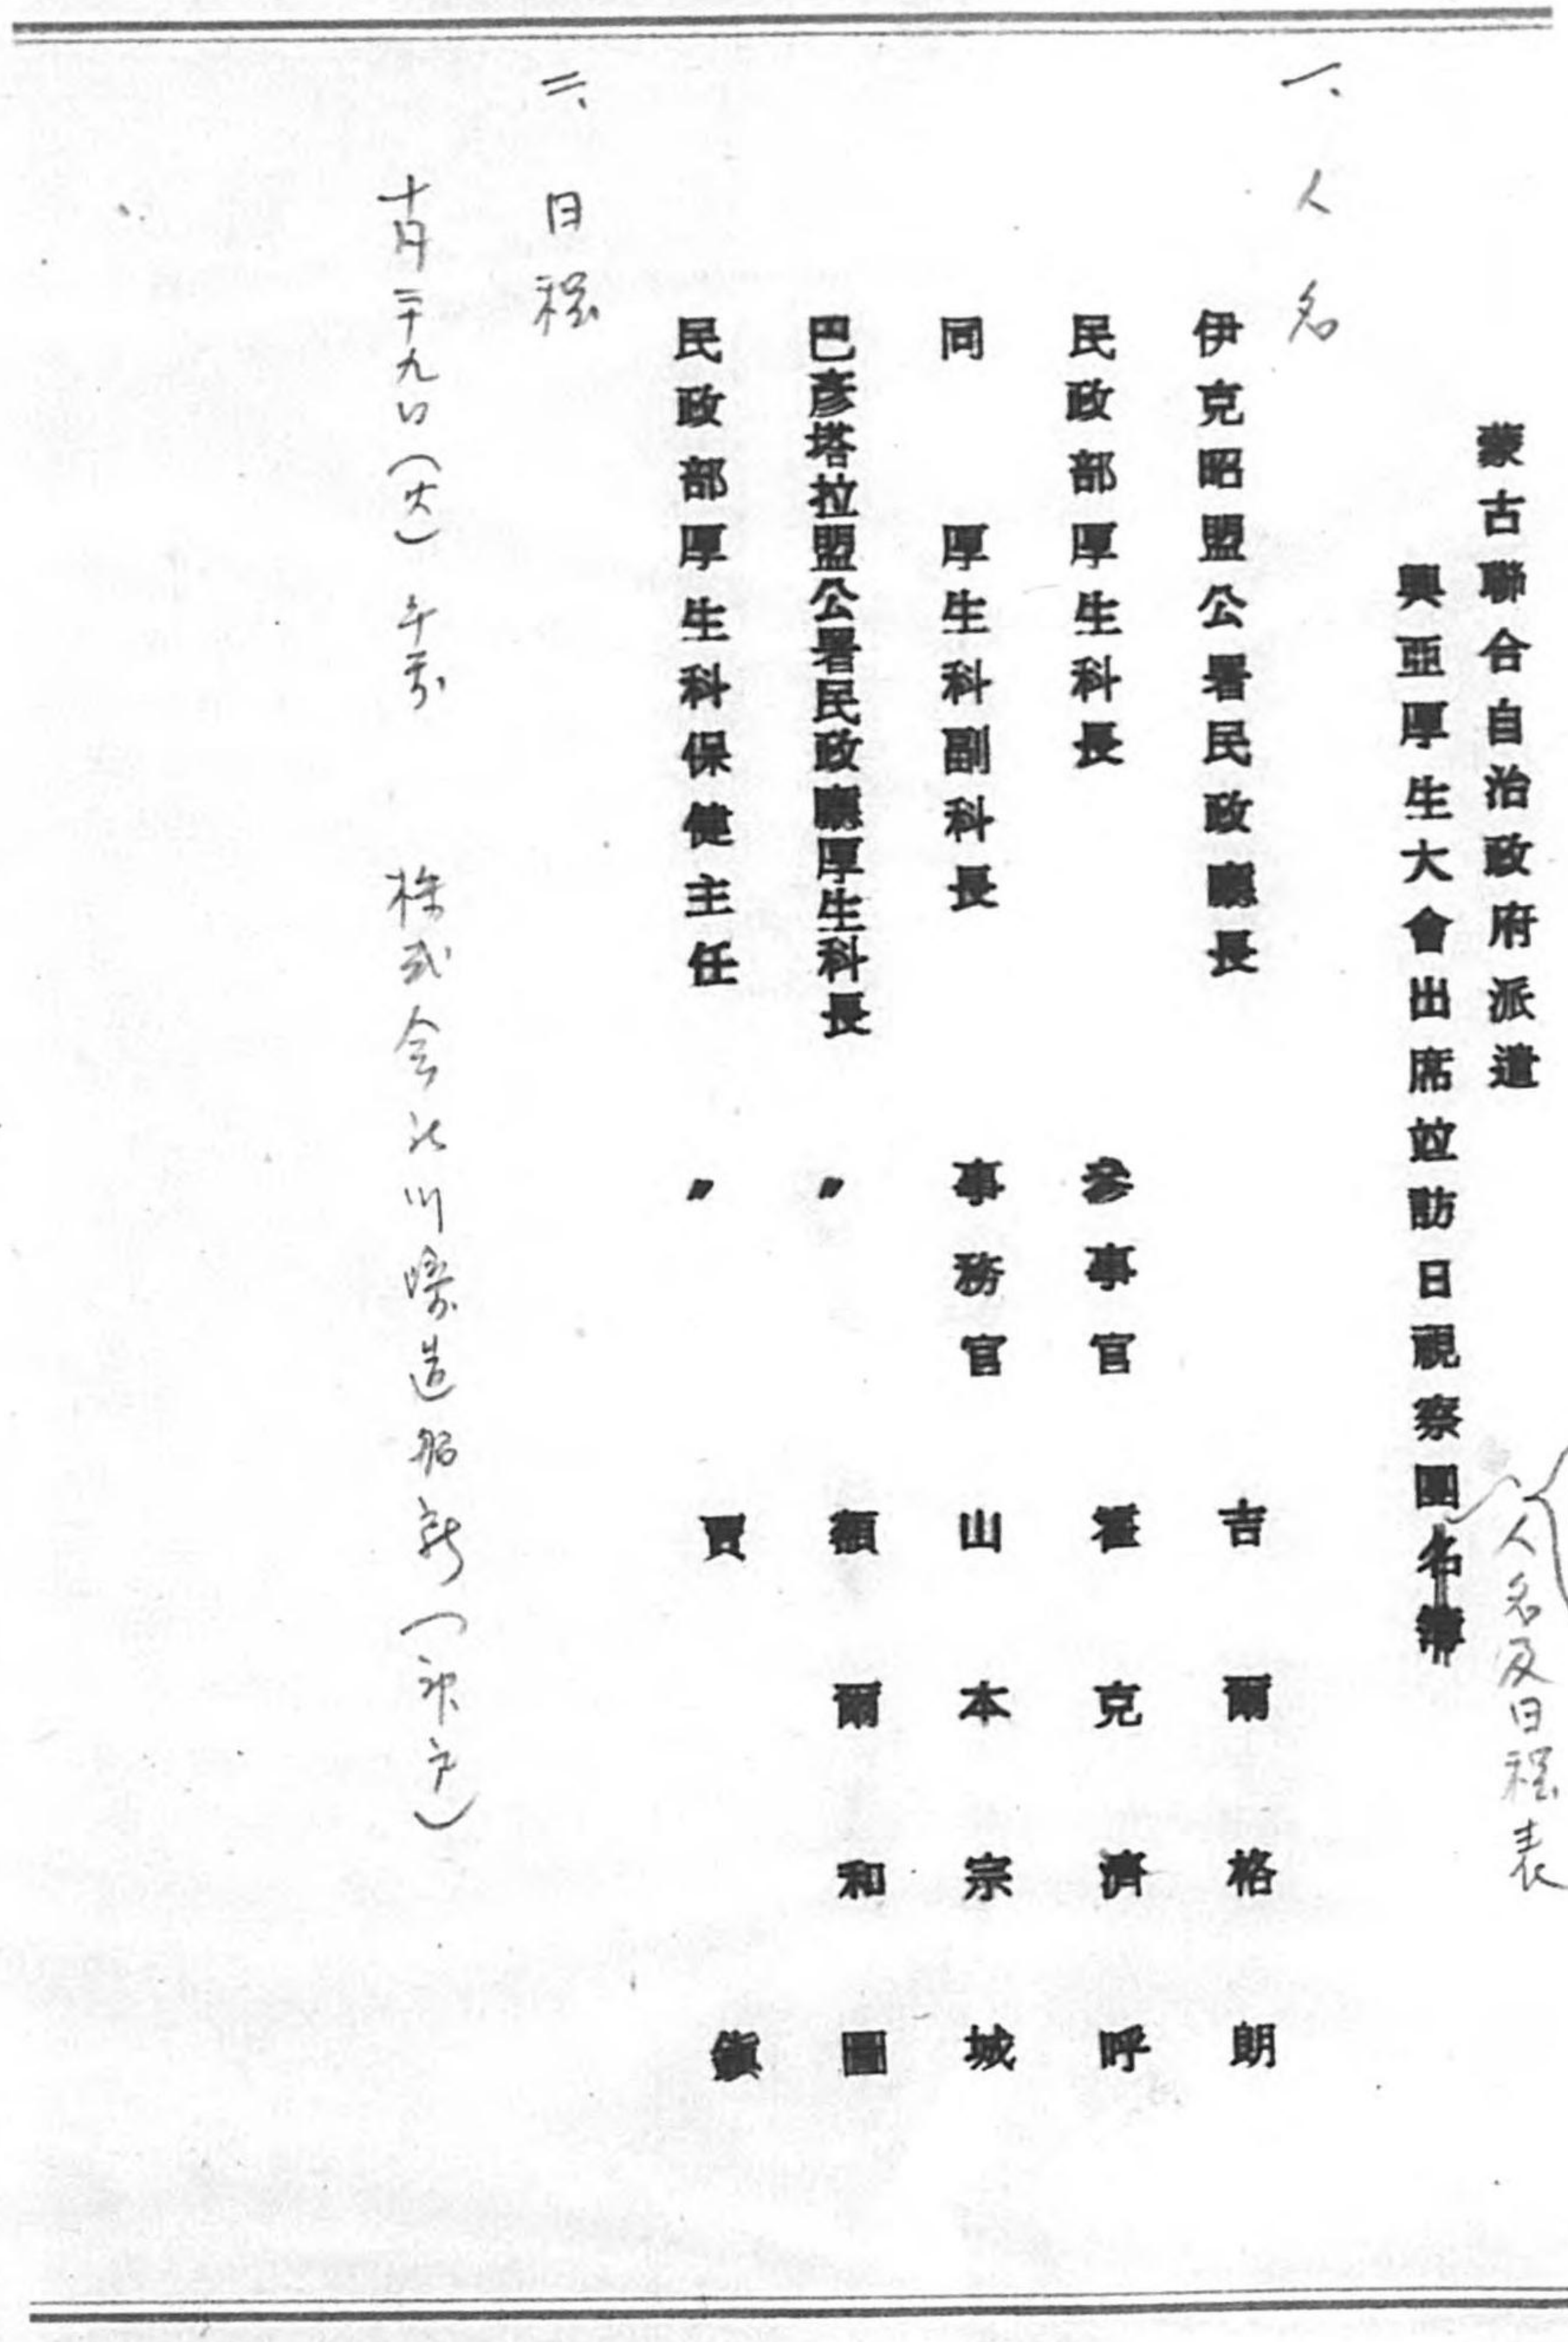 蒙古聯合自治政府派遣
興亞厚生大會出席竝訪日視察團名簿
人名及日程表
一、人名
伊克昭盟公署民政廳長 吉爾格朗
民政部厚生科長 參事官 霍克濟呼
同 厚生科副科長 事務官 山本宗城
巴彥塔拉盟公署民政廳厚生科長 〃 額爾和圖
民政部厚生科保健主任 〃 賈
二、日程
十月二十九日(火) 午前 株式会社川崎造船所(神戸)